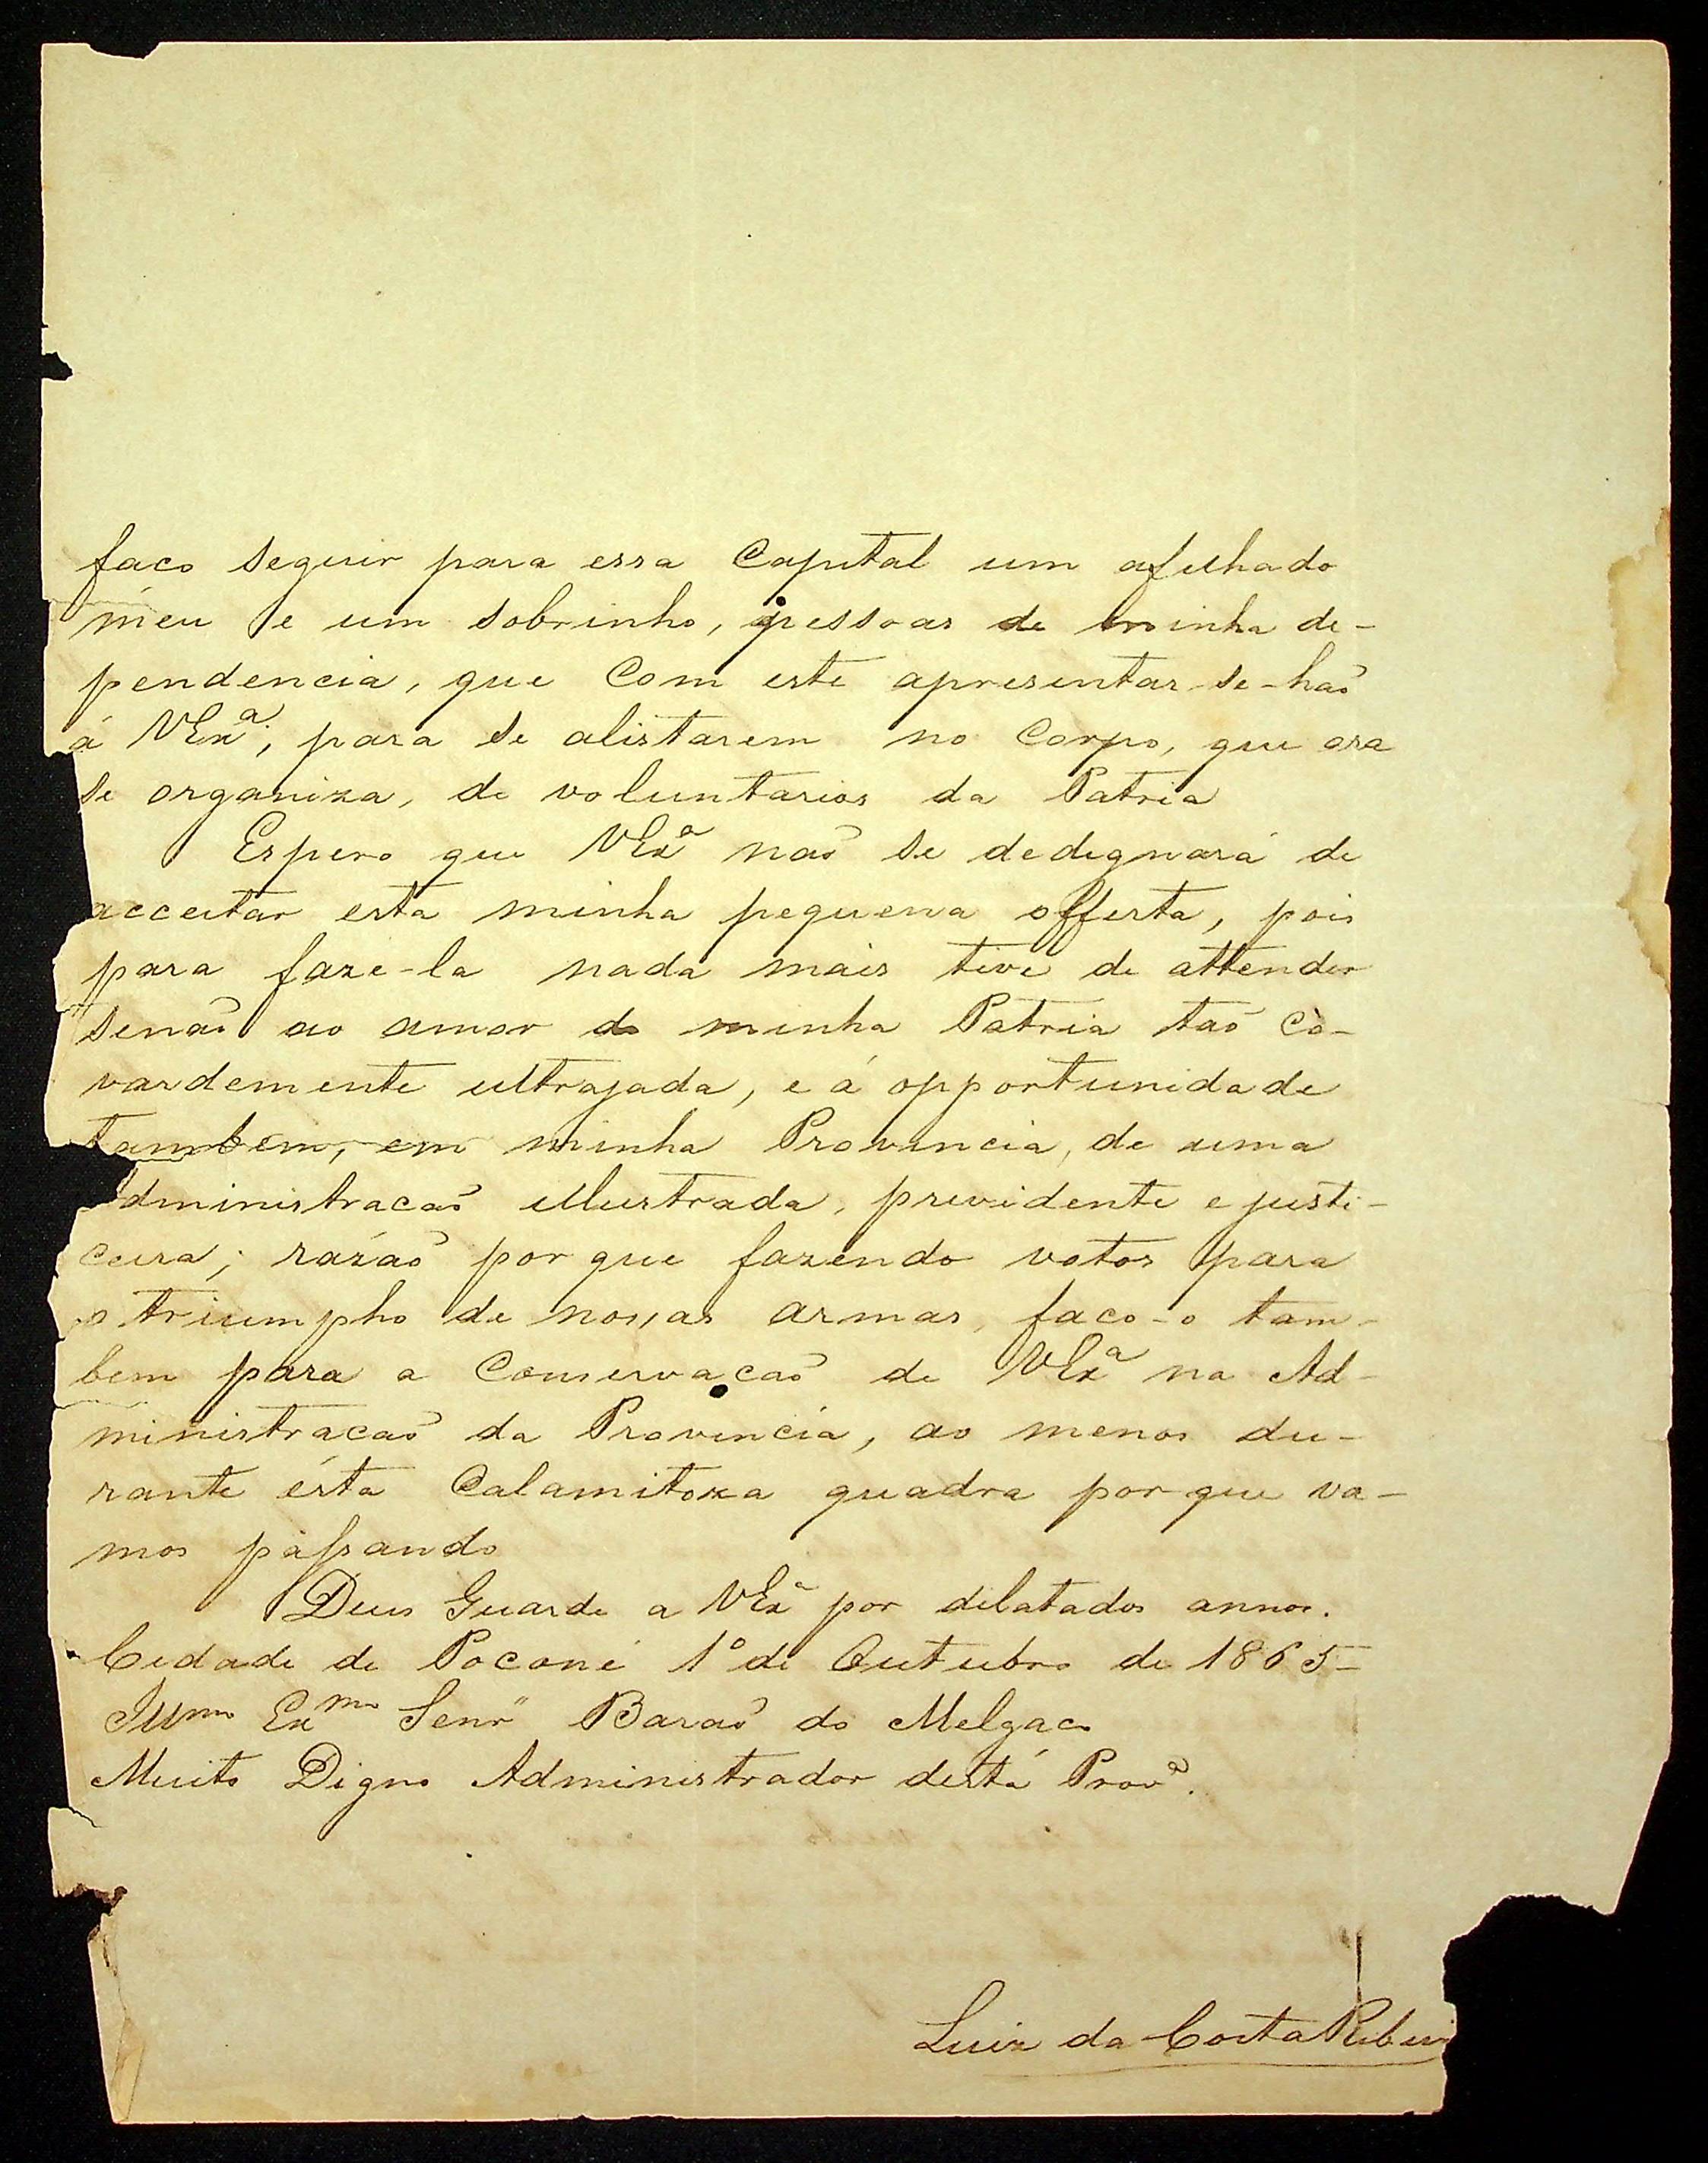 faco seguir para essa Capital um afilhado
meu e um sobrinho, pessoas de minha de-
pendencia, que com este apresentar-se-haõ
á VExª, para se alistarem no Corpo, que ora
se organiza, de voluntarios da Patria
Espero que VExª naõ se dedignará de
acceitar esta minha pequena offerta, pois
para faze-la nada mais tive de attender
senaõ ao amor da minha Patria taõ co-
vardemente ultrajada, e á opportunidade
tambem, em minha Provincia, de uma
dministracaõ illustrada, previdente e justi-
ceira; razaõ porque fazendo votos para
o triumpho de nossas armas, faco-o tam-
bem para a Conservaçaõ de VExª na Ad-
ministracaõ da Provincia, ao menos du-
rante ésta Calamitoza quadra porque va-
mos passando
Deus Guarde a VExª por dilatados annos.
Cidade de Poconé 1º de Outubro de 1865-
Illmo Exmo Senr Baraõ do Melgaco
Muito Digno Administrador desta Provª.
Luiz da Costa Ribei